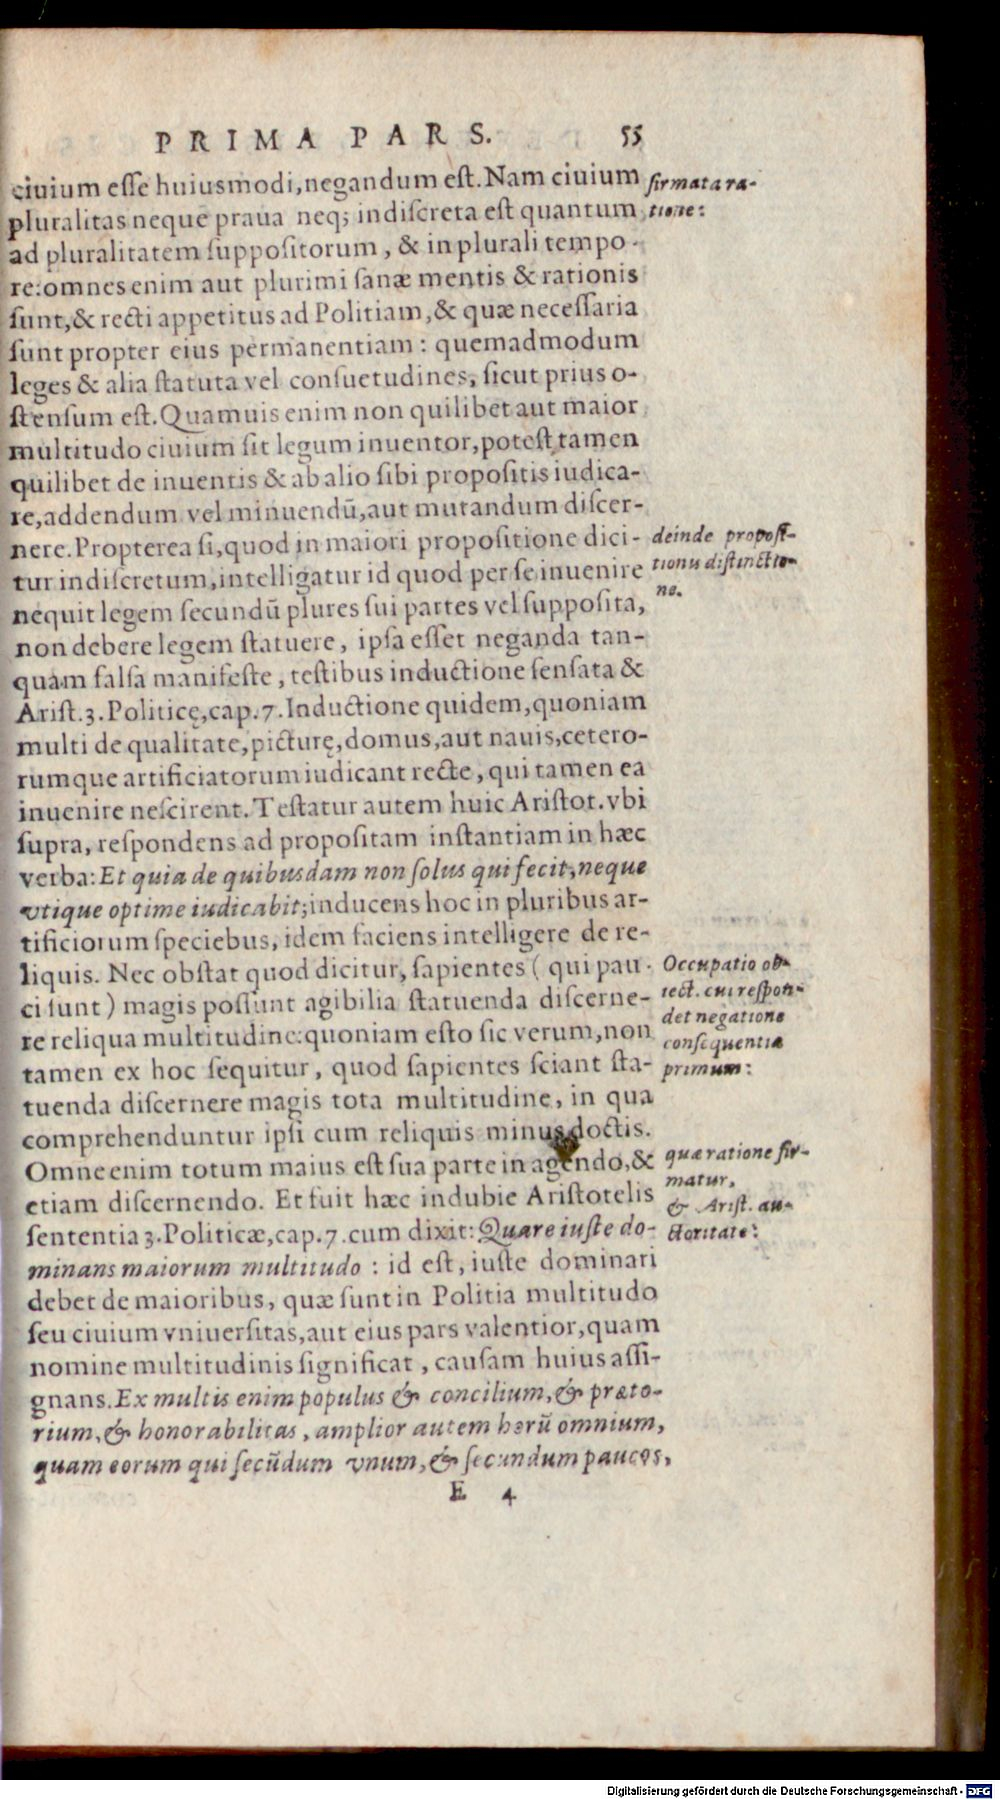 PRIMA PARS. 55
ciuium esse huiusmodi, negandum est. Nam ciuium
firmata ra-
pluralitas neque praua neq; indiscreta est quantum
tione:
ad pluralitatem suppositorum, & in plurali tempo-
re: omnes enim aut plurimi sanæ mentis & rationis
sunt, & recti appetitus ad Politiam, & quæ necessaria
sunt propter eius permanentiam: quemadmodum
leges & alia statuta vel consuetudines, sicut prius o-
stensum est. Quamuis enim non quilibet aut maior
multitudo ciuium sit legum inuentor, potest tamen
quilibet de inuentis & ab alio sibi propositis iudica-
re, addendum vel minuendū, aut mutandum discer-
nere. Propterea si, quod in maiori propositione dici-
deinde proposi-
tur indiscretum, intelligatur id quod per se inuenire
tionis distinctio-
nequit legem secundū plures sui partes vel supposita,
ne.
non debere legem statuere, ipsa esset neganda tan-
quam falsa manifeste, testibus inductione sensata &
Arist. 3. Politicę, cap. 7. Inductione quidem, quoniam
multi de qualitate, picturę, domus, aut nauis, cetero-
rumque artificiatorum iudicant recte, qui tamen ea
inuenire nescirent. Testatur autem huic Aristot. vbi
supra, respondens ad propositam instantiam in hæc
verba: Et quia de quibusdam non solus qui fecit, neque
vtique optime iudicabit; inducens hoc in pluribus ar-
tificiorum speciebus, idem faciens intelligere de re-
liquis. Nec obstat quod dicitur, sapientes ( qui pau-
Occupatio ob-
ci sunt ) magis possunt agibilia statuenda discerne-
iect. cui respon-
re reliqua multitudine: quoniam esto sic verum, non
det negatione
tamen ex hoc sequitur, quod sapientes sciant sta-
consequentiæ
primum:
tuenda discernere magis tota multitudine, in qua
comprehenduntur ipsi cum reliquis minus doctis.
Omne enim totum maius est sua parte in agendo, &
quæ ratione fir-
etiam discernendo. Et fuit hæc indubie Aristotelis
matur,
& Arist. au-
sententia 3. Politicæ, cap. 7. cum dixit: Quare iuste do-
ctoritate:
minans maiorum multitudo : id est, iuste dominari
debet de maioribus, quæ sunt in Politia multitudo
seu ciuium vniuersitas, aut eius pars valentior, quam
nomine multitudinis significat, causam huius assi-
gnans. Ex multis enim populus & concilium, & præto-
rium, & honorabilitas, amplior autem horū omnium,
quam eorum qui secūdum vnum, & secundum paucos,
E 4
Digitalisierung gefördert durch die Deutsche Forschungsgemeinschaft - DFG